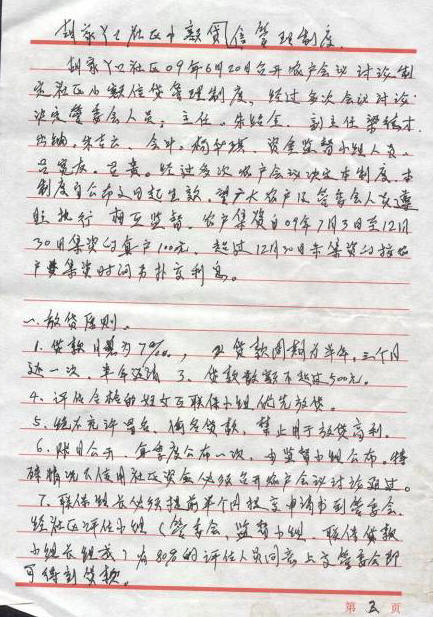 胡家丫口社区小额贷信管理制度
胡家丫口社区09年6月20日召开农户会议讨论制
定社区小额信贷管理制度、经过多次会议讨论
决定管委会人员，主任、朱 副主任梁
出纳、朱 会计、杨 、资金监督小组人员、
吕 、吕贵。经过多次农户会议决定本制度、本
制度自公布之日起生效。望广大农户及管委会人员遵
照执行 相互监督、农户集资自09年7月3日至12月
30日集资的每户100元、超过12月30日未集资的按
户集资时间另外交利息。
一、放贷原则。
1、贷款月息为7‰， 2、贷款周期为半年，三个月
还一次、半年还清 3、贷款数额不超过500元。
4、评估合格的妇女互联保小组优先放贷。
5、绝不允许冒名、借名贷款，禁止用于放贷高利。
6、账目公开、每季度公布一次、由监督小组公布。特
殊情况不使用社区资金必须召开农户会议讨论通过。
7、联保组长必须提前半个月提交申请书到管委会、
经社区评估小组（管委会、监督小组、联保贷款
小组长组成）有80%的评估人员同意上交管委会即
可得到贷款。
第 五 页